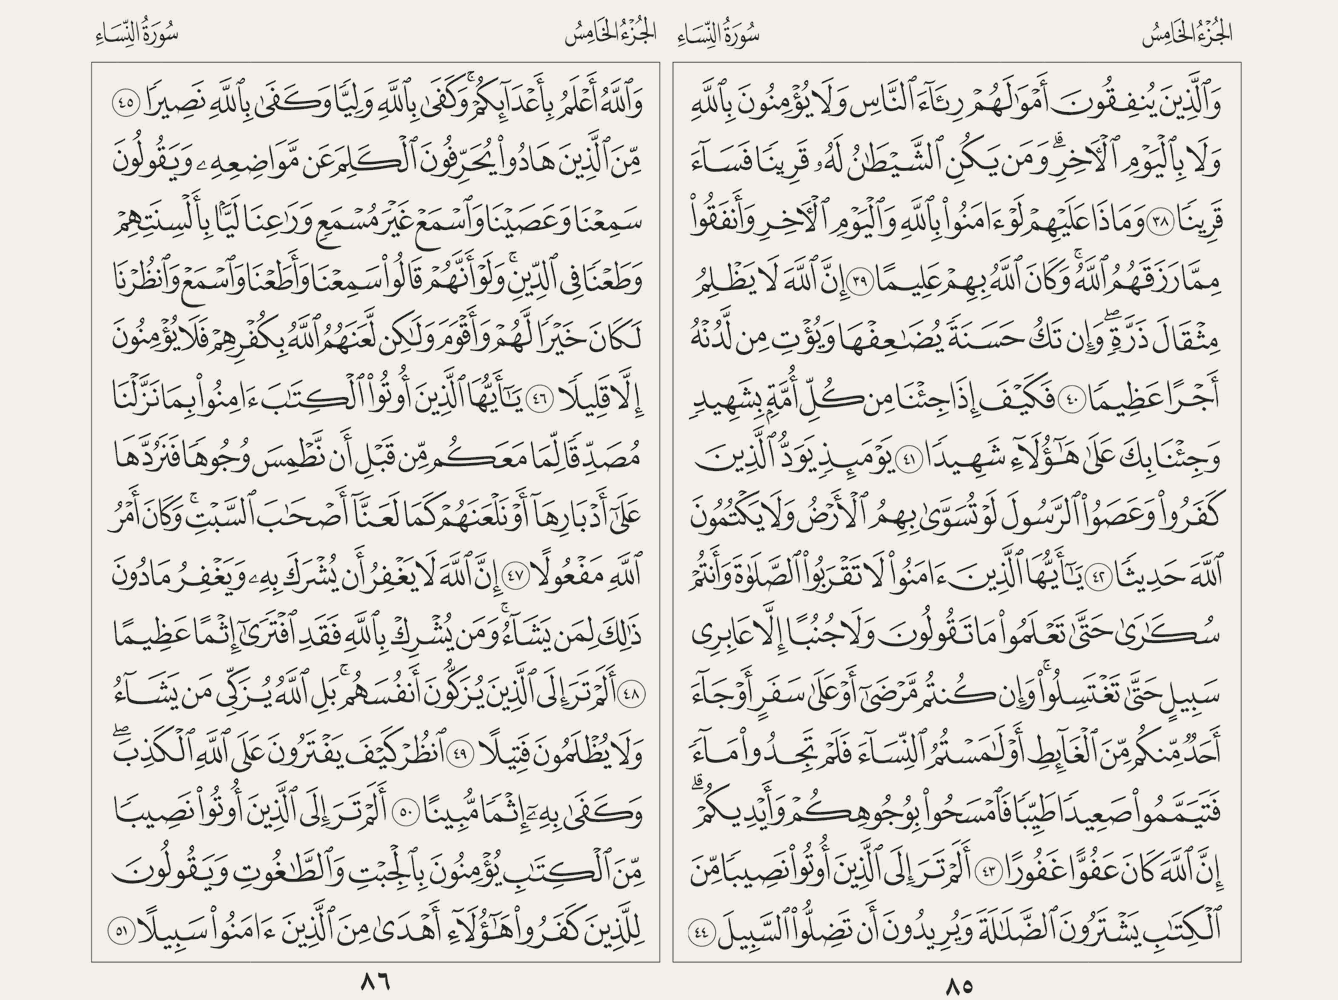 الجُزْءُ الخَامِسُ
سُورَةُ النِّسَاءِ
وَٱلَّذِينَ يُنفِقُونَ أَمْوَٰلَهُمْ رِئَآءَ ٱلنَّاسِ وَلَا يُؤْمِنُونَ بِٱللَّهِ
وَلَا بِٱلْيَوْمِ ٱلْـَٔاخِرِ ۗ وَمَن يَكُنِ ٱلشَّيْطَٰنُ لَهُۥ قَرِينًا فَسَآءَ
قَرِينًا ٣٨ وَمَاذَا عَلَيْهِمْ لَوْ ءَامَنُوا۟ بِٱللَّهِ وَٱلْيَوْمِ ٱلْـَٔاخِرِ وَأَنفَقُوا۟
مِمَّا رَزَقَهُمُ ٱللَّهُ ۚ وَكَانَ ٱللَّهُ بِهِمْ عَلِيمًا ٣٩ إِنَّ ٱللَّهَ لَا يَظْلِمُ
مِثْقَالَ ذَرَّةٍ ۖ وَإِن تَكُ حَسَنَةً يُضَٰعِفْهَا وَيُؤْتِ مِن لَّدُنْهُ
أَجْرًا عَظِيمًا ٤٠ فَكَيْفَ إِذَا جِئْنَا مِن كُلِّ أُمَّةٍۭ بِشَهِيدٍ
وَجِئْنَا بِكَ عَلَىٰ هَٰٓؤُلَآءِ شَهِيدًا ٤١ يَوْمَئِذٍ يَوَدُّ ٱلَّذِينَ
كَفَرُوا۟ وَعَصَوُا۟ ٱلرَّسُولَ لَوْ تُسَوَّىٰ بِهِمُ ٱلْأَرْضُ وَلَا يَكْتُمُونَ
ٱللَّهَ حَدِيثًا ٤٢ يَٰٓأَيُّهَا ٱلَّذِينَ ءَامَنُوا۟ لَا تَقْرَبُوا۟ ٱلصَّلَوٰةَ وَأَنتُمْ
سُكَٰرَىٰ حَتَّىٰ تَعْلَمُوا۟ مَا تَقُولُونَ وَلَا جُنُبًا إِلَّا عَابِرِى
سَبِيلٍ حَتَّىٰ تَغْتَسِلُوا۟ ۚ وَإِن كُنتُم مَّرْضَىٰٓ أَوْ عَلَىٰ سَفَرٍ أَوْ جَآءَ
أَحَدٌ مِّنكُم مِّنَ ٱلْغَآئِطِ أَوْ لَٰمَسْتُمُ ٱلنِّسَآءَ فَلَمْ تَجِدُوا۟ مَآءً
فَتَيَمَّمُوا۟ صَعِيدًا طَيِّبًا فَٱمْسَحُوا۟ بِوُجُوهِكُمْ وَأَيْدِيكُمْ ۗ
إِنَّ ٱللَّهَ كَانَ عَفُوًّا غَفُورًا ٤٣ أَلَمْ تَرَ إِلَى ٱلَّذِينَ أُوتُوا۟ نَصِيبًا مِّنَ
ٱلْكِتَٰبِ يَشْتَرُونَ ٱلضَّلَٰلَةَ وَيُرِيدُونَ أَن تَضِلُّوا۟ ٱلسَّبِيلَ ٤٤
٨٥
الجُزْءُ الخَامِسُ
سُورَةُ النِّسَاءِ
وَٱللَّهُ أَعْلَمُ بِأَعْدَآئِكُمْ ۚ وَكَفَىٰ بِٱللَّهِ وَلِيًّا وَكَفَىٰ بِٱللَّهِ نَصِيرًا ٤٥
مِّنَ ٱلَّذِينَ هَادُوا۟ يُحَرِّفُونَ ٱلْكَلِمَ عَن مَّوَاضِعِهِۦ وَيَقُولُونَ
سَمِعْنَا وَعَصَيْنَا وَٱسْمَعْ غَيْرَ مُسْمَعٍ وَرَٰعِنَا لَيًّۢا بِأَلْسِنَتِهِمْ
وَطَعْنًا فِى ٱلدِّينِ ۚ وَلَوْ أَنَّهُمْ قَالُوا۟ سَمِعْنَا وَأَطَعْنَا وَٱسْمَعْ وَٱنظُرْنَا
لَكَانَ خَيْرًا لَّهُمْ وَأَقْوَمَ وَلَٰكِن لَّعَنَهُمُ ٱللَّهُ بِكُفْرِهِمْ فَلَا يُؤْمِنُونَ
إِلَّا قَلِيلًا ٤٦ يَٰٓأَيُّهَا ٱلَّذِينَ أُوتُوا۟ ٱلْكِتَٰبَ ءَامِنُوا۟ بِمَا نَزَّلْنَا
مُصَدِّقًا لِّمَا مَعَكُم مِّن قَبْلِ أَن نَّطْمِسَ وُجُوهًا فَنَرُدَّهَا
عَلَىٰٓ أَدْبَارِهَآ أَوْ نَلْعَنَهُمْ كَمَا لَعَنَّآ أَصْحَٰبَ ٱلسَّبْتِ ۚ وَكَانَ أَمْرُ
ٱللَّهِ مَفْعُولًا ٤٧ إِنَّ ٱللَّهَ لَا يَغْفِرُ أَن يُشْرَكَ بِهِۦ وَيَغْفِرُ مَا دُونَ
ذَٰلِكَ لِمَن يَشَآءُ ۚ وَمَن يُشْرِكْ بِٱللَّهِ فَقَدِ ٱفْتَرَىٰٓ إِثْمًا عَظِيمًا
٤٨ أَلَمْ تَرَ إِلَى ٱلَّذِينَ يُزَكُّونَ أَنفُسَهُم ۚ بَلِ ٱللَّهُ يُزَكِّى مَن يَشَآءُ
وَلَا يُظْلَمُونَ فَتِيلًا ٤٩ ٱنظُرْ كَيْفَ يَفْتَرُونَ عَلَى ٱللَّهِ ٱلْكَذِبَ ۖ
وَكَفَىٰ بِهِۦٓ إِثْمًا مُّبِينًا ٥٠ أَلَمْ تَرَ إِلَى ٱلَّذِينَ أُوتُوا۟ نَصِيبًا
مِّنَ ٱلْكِتَٰبِ يُؤْمِنُونَ بِٱلْجِبْتِ وَٱلطَّٰغُوتِ وَيَقُولُونَ
لِلَّذِينَ كَفَرُوا۟ هَٰٓؤُلَآءِ أَهْدَىٰ مِنَ ٱلَّذِينَ ءَامَنُوا۟ سَبِيلًا ٥١
٨٦